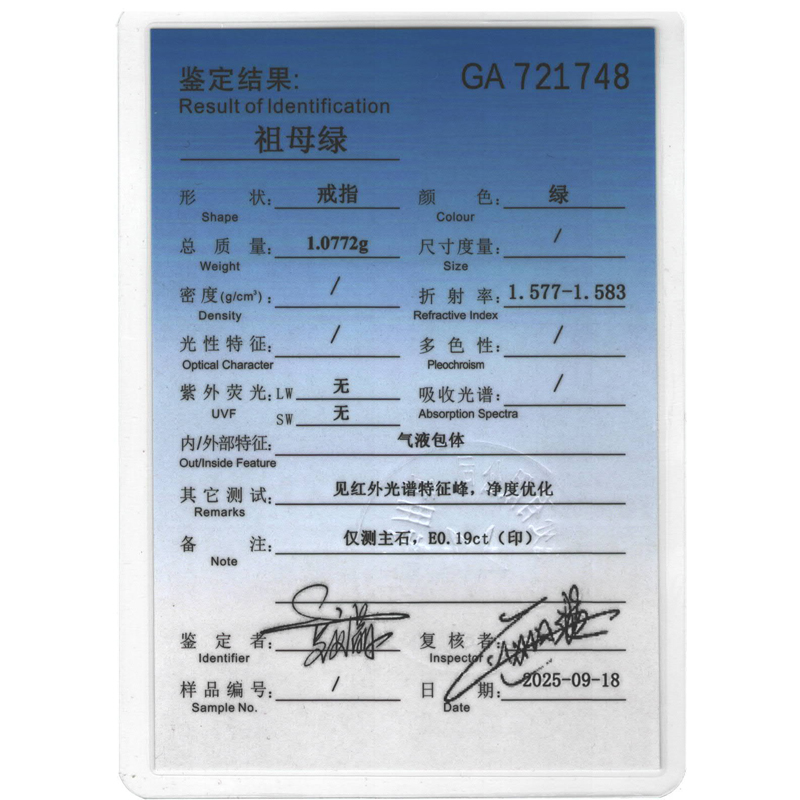 鉴定结果: GA 721748
Result of Identification
祖母绿
形 状: 戒指 颜 色: 绿
Shape Colour
总 质 量: 1.0772g 尺寸度量: /
Weight Size
密度(g/cm³): / 折 射 率: 1.577-1.583
Density Refractive Index
光性特征: / 多 色 性: /
Optical Character Pleochroism
紫外荧光: LW 无 吸收光谱: /
UVF SW 无 Absorption Spectra
内/外部特征: 气液包体
Out/Inside Feature
其它测试: 见红外光谱特征峰，净度优化
Remarks
备 注: 仅测主石，E0.19ct（印）
Note
鉴 定 者: 复 核 者:
Identifier Inspector
样品编号: / 日 期: 2025-09-18
Sample No. Date